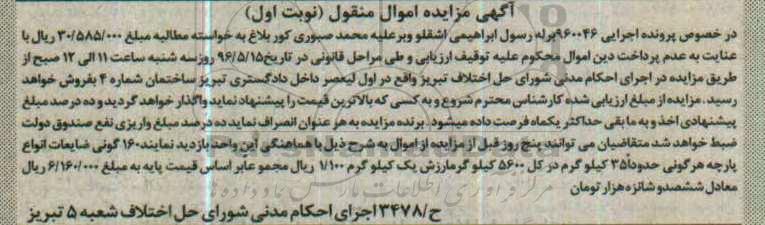 آگهی مزایده اموال منقول (نوبت اول)
در خصوص پرونده اجرایی ۹۶۰۰۴۶برله رسول ابراهیمی اشقلو وبرعلیه محمد صبوری کور بلاغ به خواسته مطالبه مبلغ ۳۰/۵۸۵/۰۰۰ ریال با
عنایت به عدم پرداخت دین اموال محکوم علیه توقیف ارزیابی و طی مراحل قانونی در تاریخ۹۶/۵/۱۵ روزسه شنبه ساعت ۱۱ الی ۱۲ صبح از
طریق مزایده در اجرای احکام مدنی شورای حل اختلاف تبریز واقع در اول لیعصر داخل دادگستری تبریز ساختمان شماره ۴ بفروش خواهد
رسید. مزایده از مبلغ ارزیابی شده کارشناس محترم شروع و به کسی که بالاترین قیمت را پیشنهاد نماید واگذار خواهد گردید و ده در صد مبلغ
پیشنهادی اخذ و به مابقی حداکثر یکماه فرصت داده میشود. برنده مزایده به هر عنوان انصراف نماید ده درصد مبلغ واریزی نفع صندوق دولت
ضبط خواهد شد متقاضیان می توانند پنج روز قبل از مزایده از اموال به شرح ذیل با هماهنگی این واحد بازدید نمایند۱۶۰ گونی ضایعات انواع
پارچه هرگونی حدودا۳۵ کیلو گرم در کل ۵۶۰۰ کیلو گرمارزش یک کیلو گرم ۱/۱۰۰ ریال مجمو عابر اساس قیمت پایه به مبلغ ۶/۱۶۰/۰۰۰ ریال
معادل ششصدو شانزه هزار تومان
ح/۳۴۷۸ اجرای احکام مدنی شورای حل اختلاف شعبه ۵ تبریز